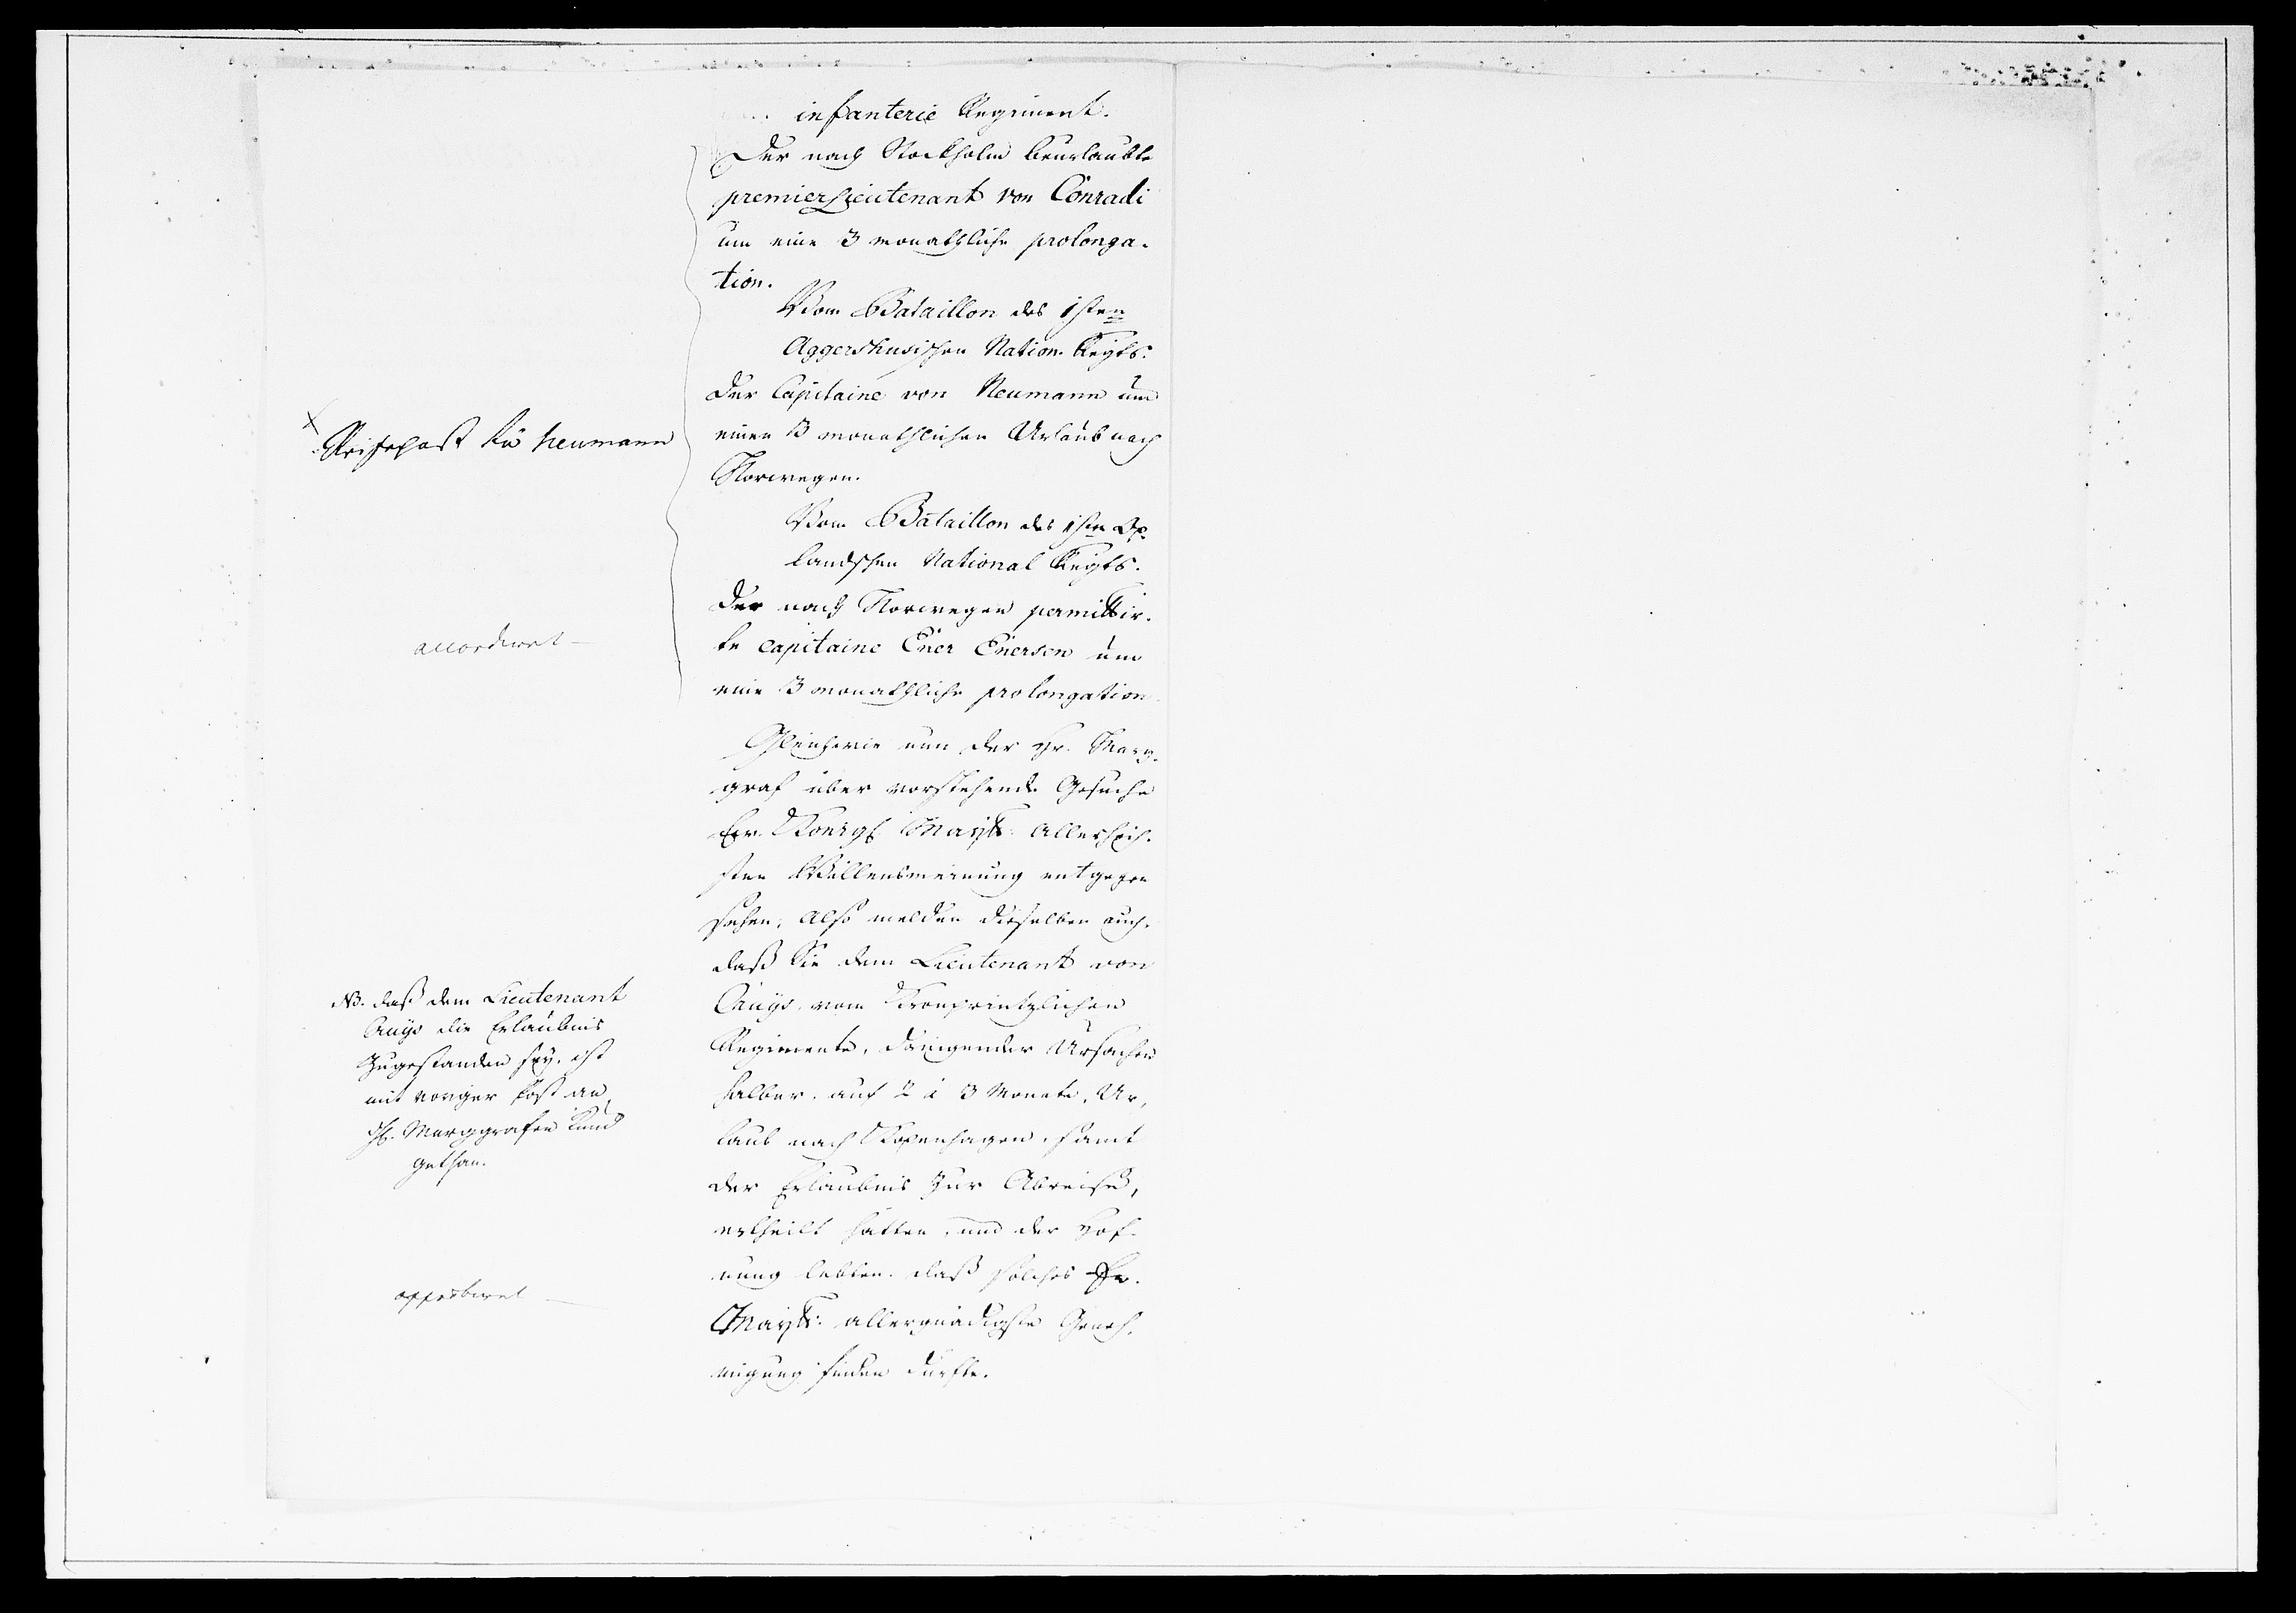 infanterie Regiment.
Der nach Stockholm beurlaubte
premierLieutenant von Conradi
um eine 3 monathliche prolonga-
tion.
Vom Bataillon des 1sten
Aggershusischen Nation. Regts.
Der Capitaine von Neumann um
einen 3 monathlichen Urlaub nach
Norwegen.
Vom Bataillon des 1sten Op-
landschen National Regts.
Der nach Norwegen permittir-
te Capitaine Ener Enersen um
eine 3 monathliche prolongation
Gleichwie nun der Hr. Marg-
graf über vorstehende Gesuche
Ew. Königl Mayt. Allerhöch-
sten Willensmeinung entgegen
sehen, also melden dieselben auch,
daß Sie dem Lieutenant von
Auÿs vom Kronprintzlichen
Regimente, dringender Ursachen
halber, auf 2 à 3 Monate, Ur-
laub nach Kopenhagen, samt
der Erlaubnis zur Abreise,
ertheilt hätten, und der Hof-
nung lebten, daß solches Ew.
Mayt. allergnädigste Geneh-
migung finden dürfte.
Neumann
accorderet —
NB. daß dem Lieutenant
Auÿs die Erlaubnis
zugestanden seÿ, ist
mit voriger Post an
H. Marggrafen kund
gethan.
approberet —